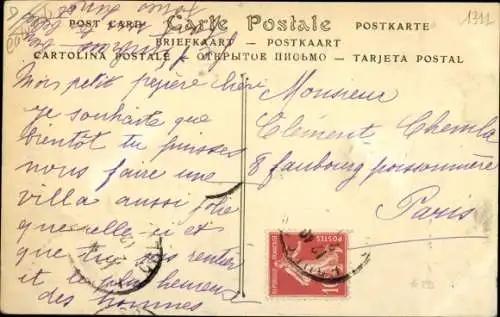 POST CARD Carte Postale POSTKARTE
BRIEFKAART — POSTKAART
CARTOLINA POSTALE — ОТКРЫТОЕ ПИСЬМО — TARJETA POSTAL
1911
Mon petit pépère chéri
je souhaite que
bientôt tu puisses
nous faire une
villa aussi jolie
que celle ci et
que tu sois rentier
et le plus heureux
des hommes
Monsieur
Clément Chemla
8 faubourg poissonnière
Paris
POSTES
REPUBLIQUE FRANÇAISE